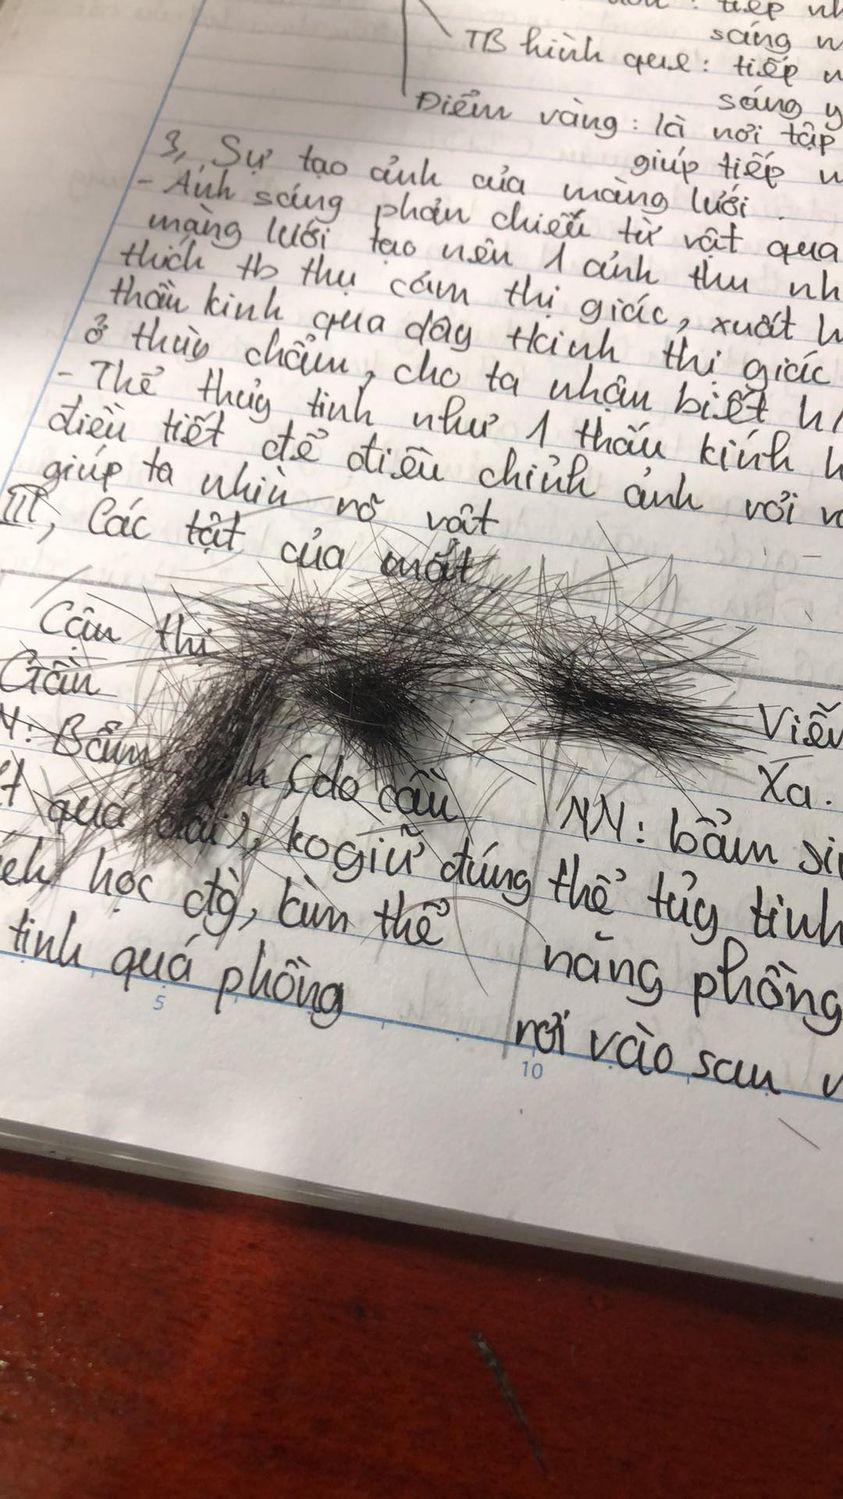 tiếp nh
sáng m
TB hình que: tiếp n
sáng y
Điểm vàng: là nơi tập
giúp tiếp n
3, Sự tạo ảnh của màng lưới.
- Ánh sáng phản chiếu từ vật qua
màng lưới tạo nên 1 ảnh thu nh
thích tb thụ cảm thị giác, xuất h
thần kinh qua dây tkinh thị giác
ở thùy chẩm, cho ta nhận biết h/
- Thể thủy tinh như 1 thấu kính h
điều tiết để điều chỉnh ảnh rơi v
giúp ta nhìn rõ vật
III, Các tật của mắt
Cận thị
Viễn
Gần
Xa.
N: Bẩm
(do cầu
NN: bẩm si
t quá dài), ko giữ đúng
thể tủy tinh
ch học đg, làm thể
năng phồng
tinh quá phồng
rơi vào sau v
5
10